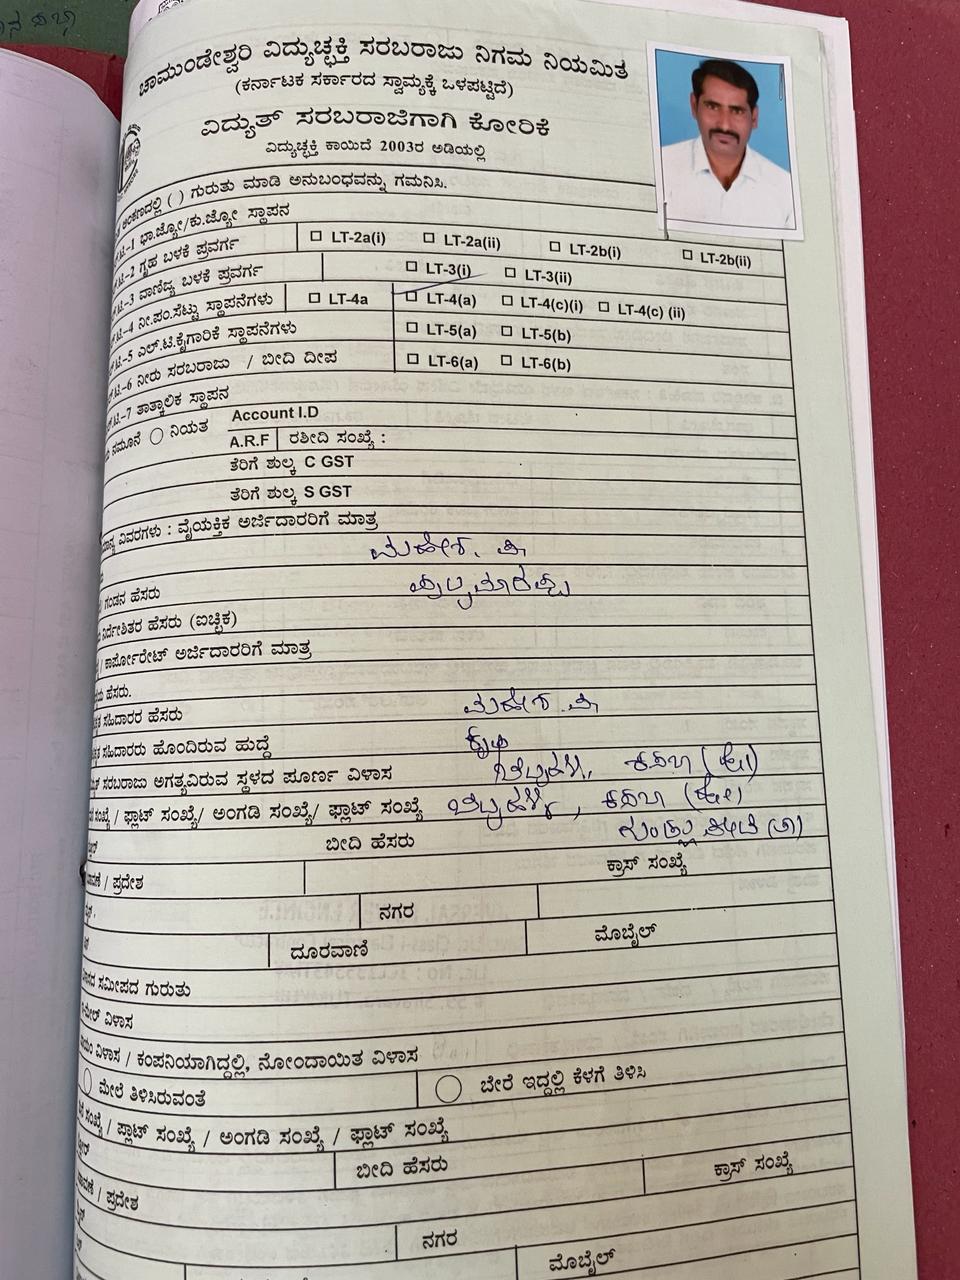 ಚಾಮುಂಡೇಶ್ವರಿ ವಿದ್ಯುಚ್ಛಕ್ತಿ ಸರಬರಾಜು ನಿಗಮ ನಿಯಮಿತ
(ಕರ್ನಾಟಕ ಸರ್ಕಾರದ ಸ್ವಾಮ್ಯಕ್ಕೆ ಒಳಪಟ್ಟಿದೆ)
ವಿದ್ಯುತ್ ಸರಬರಾಜಿಗಾಗಿ ಕೋರಿಕೆ
ವಿದ್ಯುಚ್ಛಕ್ತಿ ಕಾಯಿದೆ 2003ರ ಅಡಿಯಲ್ಲಿ
ಅಂಕಣದಲ್ಲಿ ( ) ಗುರುತು ಮಾಡಿ ಅನುಬಂಧವನ್ನು ಗಮನಿಸಿ.
-1 ಭಾ.ಜ್ಯೋ/ಕು.ಜ್ಯೋ ಸ್ಥಾಪನ
-2 ಗೃಹ ಬಳಕೆ ಪ್ರವರ್ಗ LT-2a(i) LT-2a(ii) LT-2b(i) LT-2b(ii)
-3 ವಾಣಿಜ್ಯ ಬಳಕೆ ಪ್ರವರ್ಗ LT-3(i) LT-3(ii)
-4 ನೀ.ಪಂ.ಸೆಟ್ಟು ಸ್ಥಾಪನೆಗಳು LT-4a LT-4(a) LT-4(c)(i) LT-4(c) (ii)
-5 ಎಲ್.ಟಿ.ಕೈಗಾರಿಕೆ ಸ್ಥಾಪನೆಗಳು LT-5(a) LT-5(b)
-6 ನೀರು ಸರಬರಾಜು / ಬೀದಿ ದೀಪ LT-6(a) LT-6(b)
-7 ತಾತ್ಕಾಲಿಕ ಸ್ಥಾಪನ
ನಮೂನೆ ನಿಯತ Account I.D
A.R.F ರಶೀದಿ ಸಂಖ್ಯೆ :
ತೆರಿಗೆ ಶುಲ್ಕ C GST
ತೆರಿಗೆ ಶುಲ್ಕ S GST
ವಿವರಗಳು : ವೈಯಕ್ತಿಕ ಅರ್ಜಿದಾರರಿಗೆ ಮಾತ್ರ
ಮಹೇಶ.
ಗಂಡನ ಹೆಸರು
ನಿರ್ದೇಶಿತರ ಹೆಸರು (ಐಚ್ಛಿಕ)
/ ಕಾರ್ಪೋರೇಟ್ ಅರ್ಜಿದಾರರಿಗೆ ಮಾತ್ರ
ಹೆಸರು.
ಸಹಿದಾರರ ಹೆಸರು ಮಹೇಶ.
ಸಹಿದಾರರು ಹೊಂದಿರುವ ಹುದ್ದೆ ಕೃಷಿ
ಸರಬರಾಜು ಅಗತ್ಯವಿರುವ ಸ್ಥಳದ ಪೂರ್ಣ ವಿಳಾಸ
ಸಂಖ್ಯೆ / ಫ್ಲಾಟ್ ಸಂಖ್ಯೆ/ ಅಂಗಡಿ ಸಂಖ್ಯೆ/ ಫ್ಲಾಟ್ ಸಂಖ್ಯೆ
ಬೀದಿ ಹೆಸರು
/ ಪ್ರದೇಶ ಕ್ರಾಸ್ ಸಂಖ್ಯೆ
ನಗರ
ದೂರವಾಣಿ ಮೊಬೈಲ್
ಸಮೀಪದ ಗುರುತು
ವಿಳಾಸ
ವಿಳಾಸ / ಕಂಪನಿಯಾಗಿದ್ದಲ್ಲಿ, ನೋಂದಾಯಿತ ವಿಳಾಸ
ಮೇಲೆ ತಿಳಿಸಿರುವಂತೆ ಬೇರೆ ಇದ್ದಲ್ಲಿ ಕೆಳಗೆ ತಿಳಿಸಿ
ಸಂಖ್ಯೆ / ಫ್ಲಾಟ್ ಸಂಖ್ಯೆ / ಅಂಗಡಿ ಸಂಖ್ಯೆ / ಫ್ಲಾಟ್ ಸಂಖ್ಯೆ
ಬೀದಿ ಹೆಸರು ಕ್ರಾಸ್ ಸಂಖ್ಯೆ
/ ಪ್ರದೇಶ
ನಗರ
ಮೊಬೈಲ್